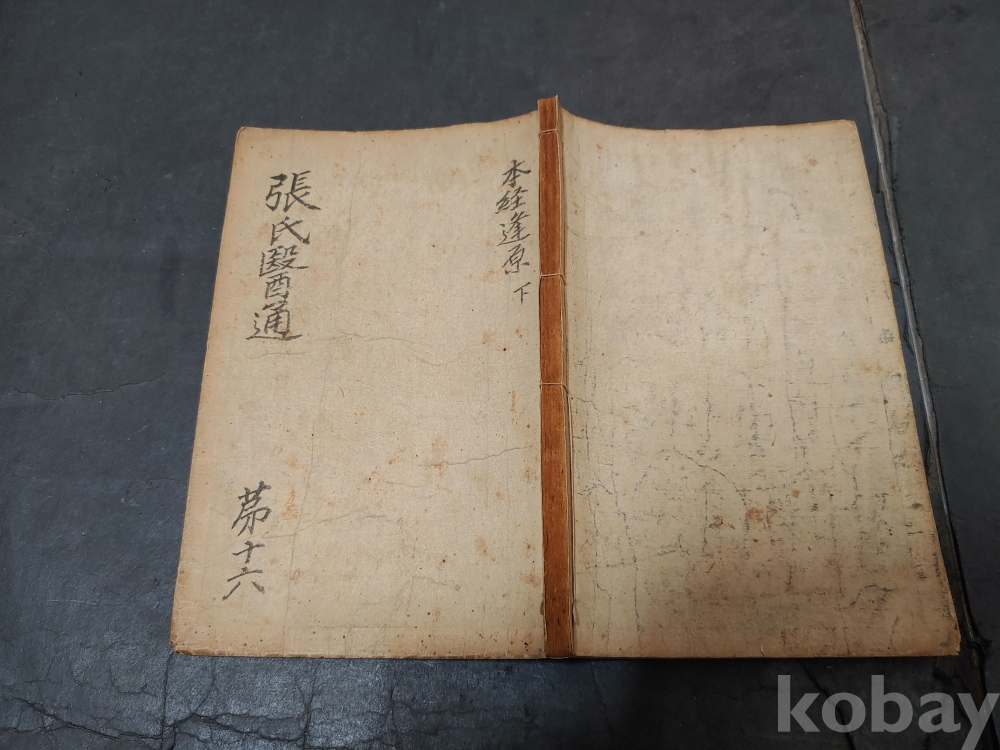 本経逢原 下
張氏醫通
苐十六
kobay